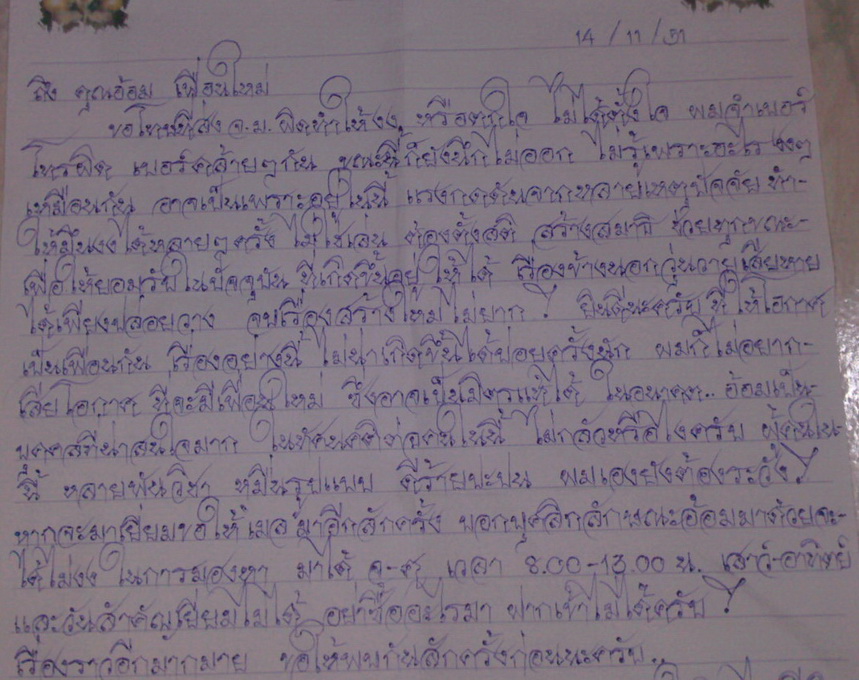 14 / 11 / 51
ถึง คุณอ้อม เพื่อนใหม่
ขอโทษที่ส่ง จ.ม. ผิดทำให้งง หรือตกใจ ไม่ได้ตั้งใจ ผมจำเบอร์
โทรผิด เบอร์คล้ายๆกัน ขณะนี้ก็ยังนึกไม่ออก ไม่รู้เพราะอะไร งงๆ
เหมือนกัน อาจเป็นเพราะอยู่ในนี้ แรงกดดันจากหลายเหตุปัจจัย ทำ-
ให้มึนงงได้หลายๆครั้ง ไม่ใช่เล่น ต้องตั้งสติ สร้างสมาธิ ช่วยทุกขณะ-
เพื่อให้ยอมรับในปัจจุบัน ที่เกิดขึ้นอยู่ ให้ได้ เรื่องข้างนอกวุ่นวายเสียหาย
ได้เพียงปล่อยวาง จบเรื่องสร้างใหม่ไม่ยาก ! ยินดีนะครับ ที่ให้โอกาส
เป็นเพื่อนกัน เรื่องอย่างนี้ ไม่น่าเกิดขึ้นได้บ่อยครั้งนัก ผมก็ไม่อยาก-
เสียโอกาส ที่จะมีเพื่อนใหม่ ซึ่งอาจเป็นมิตรแท้ได้ ในอนาคต.. อ้อมเป็น-
บุคคลที่น่าสนใจมาก ในทัศนคติต่อคนในนี้ ไม่กลัวหรือไงครับ ผู้คนใน-
นี้ หลายพันวิชา หมื่นรูปแบบ ดีร้ายปะปน ผมเองยังต้องระวัง !
หากจะมาเยี่ยมขอให้เมล์มาอีกสักครั้ง บอกบุคลิกลักษณะอ้อมมาด้วยจะ-
ได้ไม่งง ในการมองหา มาได้ จ-ศ เวลา 8.00-13.00 น. เสาร์-อาทิตย์
และวันสำคัญเยี่ยมไม่ได้ อย่าซื้ออะไรมา ฝากเข้าไม่ได้ครับ !
เรื่องราวอีกมากมาย ขอให้พบกันสักครั้งก่อนนะครับ..